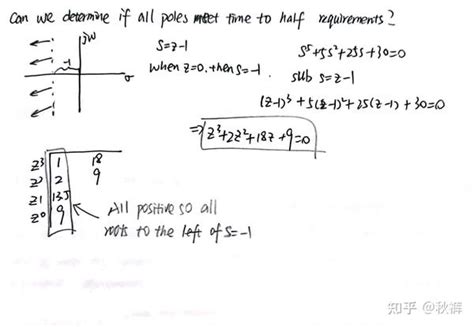 Can we determine if all poles meet time to half requirements?
jw
σ
-1
s=z-1
when z=0. then s=-1.
s³+5s²+25s+30=0
sub s=z-1
(z-1)³+5(z-1)²+25(z-1)+30=0
⇒ z³+2z²+18z+9=0
z³ 1 18
z² 2 9
z¹ 13.5
z⁰ 9
All positive so all
roots to the left of s=-1
知乎 @秋裤